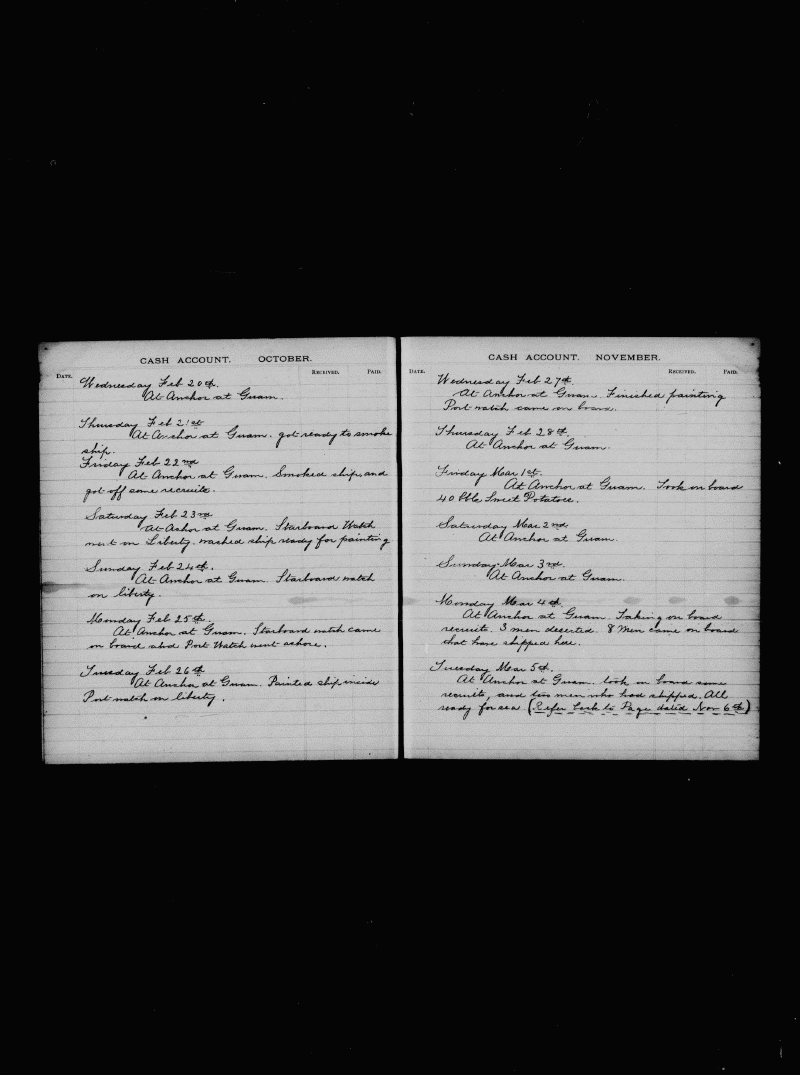 CASH ACCOUNT. OCTOBER.
DATE. RECEIVED. PAID.
Wednesday Feb 20th.
At Anchor at Guam.
Thursday Feb 21st
At Anchor at Guam. got ready to smoke
ship.
Friday Feb 22nd
At Anchor at Guam. Smoked ship, and
got off some recruits.
Saturday Feb 23rd
At Achor at Guam. Starboard Watch
went on Liberty. washed ship ready for painting
Sunday Feb 24th.
At Anchor at Guam. Starboard watch
on liberty.
Monday Feb 25th.
At Anchor at Guam. Starboard watch came
on board and Port Watch went ashore.
Tuesday Feb 26th
At Anchor at Guam. Painted ship inside
Port watch on liberty.
CASH ACCOUNT. NOVEMBER.
DATE. RECEIVED. PAID.
Wednesday Feb 27th.
At Anchor at Guam. Finished painting
Port watch came on board.
Thursday Feb 28th.
At Anchor at Guam.
Friday Mar 1st.
At Anchor at Guam. Took on board
40 bbls Sweet Potatoes.
Saturday Mar 2nd
At Anchor at Guam.
Sunday Mar 3rd.
At Anchor at Guam.
Monday Mar 4th.
At Anchor at Guam. Taking on board
recruits. 3 men deserted. 8 Men came on board
that have shipped here.
Tuesday Mar 5th.
At Anchor at Guam. took on board some
recruits, and two men who had shipped. All
ready for sea (Refer back to Page dated Nov 6th)